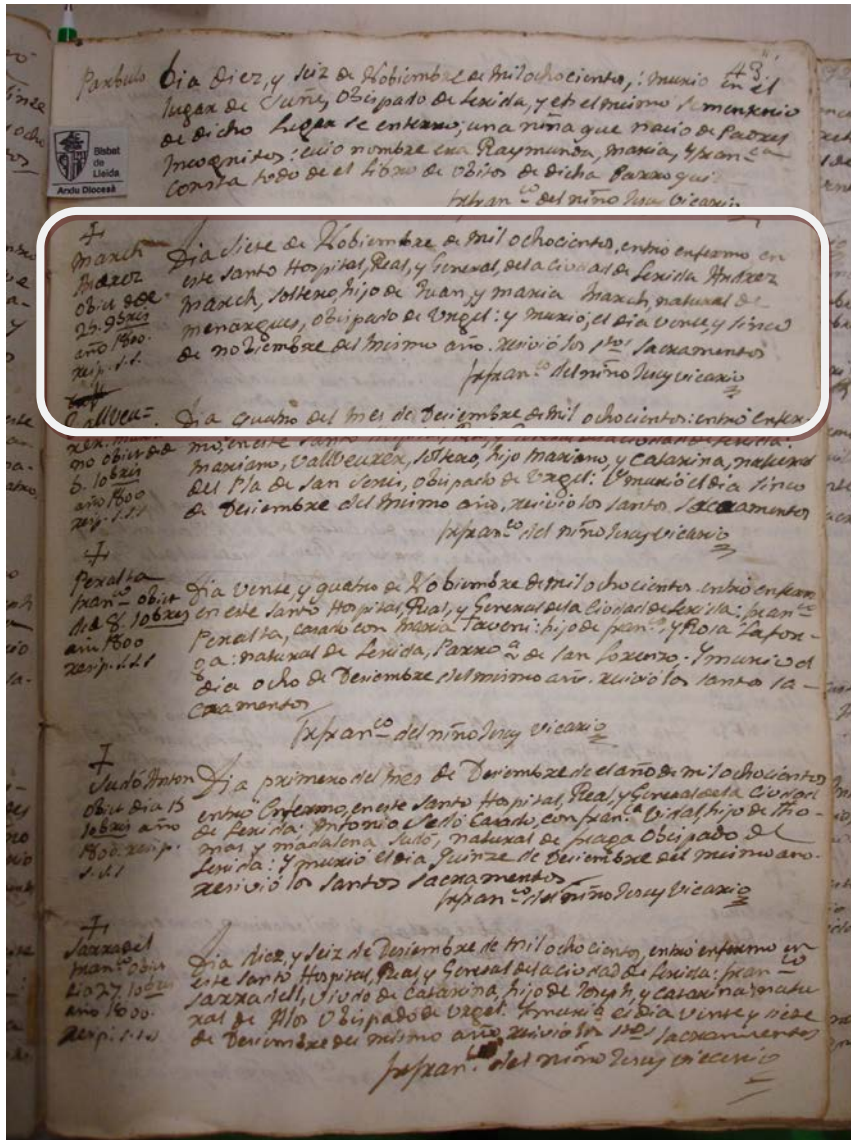 43.
Parbulo
Dia Diez, y seiz de Nobiembre de mil ochocientos,: murio en el
lugar de Suñe, Obispado de Lerida, y en el mismo sementerio
de dicho lugar se enterro; una niña que nacio de Padres
Incognitos: cuio nombre era Raymunda, maria, y fran.ca
Consta todo de el libro de obitos de dicha Parroqui.a
fr fran.co del niño Jesus vicario
Bisbat
de
Lleida
Arxiu Diocesà
March
Andrez
obiit die
25. 9bris
año 1800.
resip. s.s.
Dia siete de Nobiembre de mil ochocientos, entró enfermo en
este santo Hospital, Real, y General, de la Ciudad de Lerida Andrez
March, soltero, hijo de Juan, y maria March, natural de
menargues, obispado de Urgel: y murio, el dia vente, y sinco
de nobiembre del mismo año. resivió los s.tos sacramentos
fr fran.co del niño Jesus vicario
Vallveu=
rer. Maria
no obiit die
5. 10bris
año 1800
resip. s.s.s
Dia quatro del mes de Desiembre de mil ochocientos: entró enfer-
mo, en este santo Hospital, Real, y General de la Ciudad de Lerida:
mariano, Vallveurer, soltero, hijo mariano, y Catarina, natural
del Pla de San Tirs, obispado de Urgel: Y murio el dia sinco
de Desiembre del mismo año, resivió los santos sacramentos
fr fran.co del niño Jesus vicario
Peralta
fran.co obiit
die 8. 10bres
año 1800
resip. s.s.s
Dia vente, y quatro de Nobiembre de mil ochocientos entró enfermo
en este santo Hospital, Real, y General de la Ciudad de Lerida: fran.co
Peralta, casado con maria Taverni: hijo de fran.co y Rosa Lafon-
ga: natural de Lerida, Parro.a de san Lorenzo,: Y murio el
dia ocho de Desiembre del mismo año. resivió los santos sa-
cramentos
fr fran.co del niño Jesus vicario
Sudó Anton
obiit dia 15
10bris año
1800. resip.
s.s.s
Dia primero del mes de Desiembre de el año de mil ochocientos
entró Enfermo, en este santo Hospital, Real, y General de la Ciudad
de Lerida: Antonio Sudó Casado, con fran.ca Vidal, hijo de Tho-
mas y madalena Sudó, natural de fraga Obispado de
Lerida: Y murio el dia Quinze de Desiembre del mismo año.
resivió los santos sacramentos
fr fran.co del niño Jesus vicario
Sarradel
fran.co obiit
dia 27, 10bris
año 1800.
resip. s.s.s
Dia diez, y seiz de Desiembre de mil ochocientos, entró enfermo en
este santo Hospital, Real y General de la ciudad de Lerida: fran.co
Sarradell, Viudo de Catarina, hijo de Joseph, y catarina: natu
ral de Alos Obispado de Urgel. Y murio el dia vinte y siete
de Desiembre del mismo año, resivió los s.tos sacramentos
fr fran.co del niño Jesus vicario